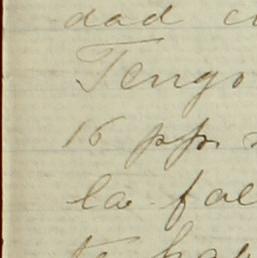 dad
Tengo
16 pp.
la fal